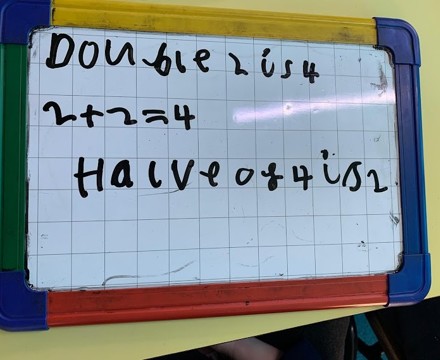 Double 2 is 4
2+2=4
Halve of 4 is 2